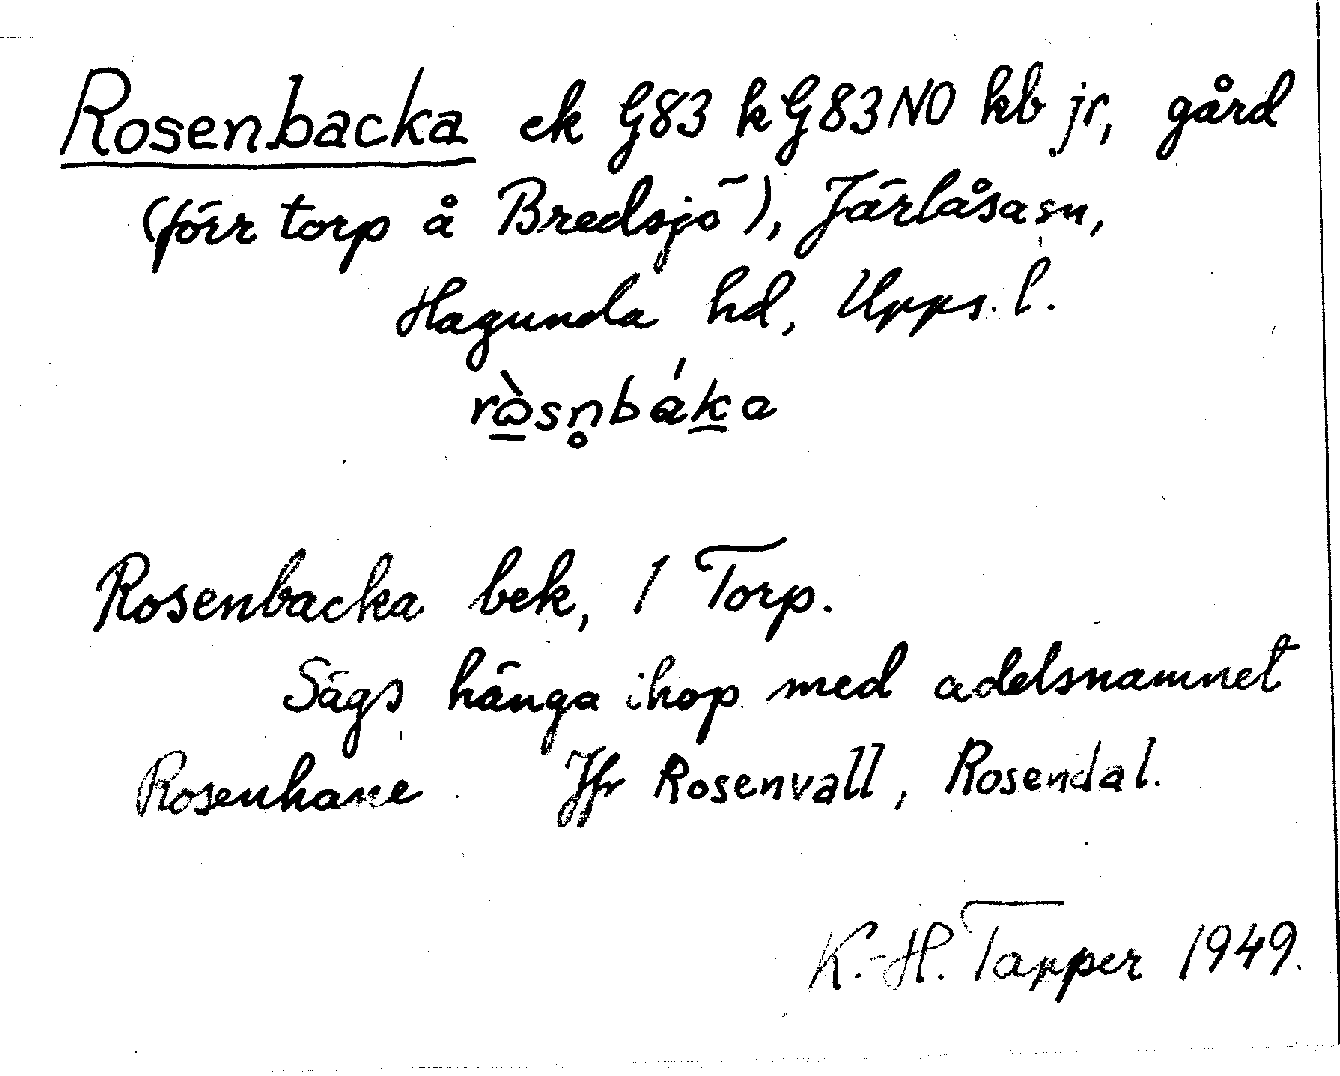 Rosenbacka ek G83 kG83NO kb jr, gård
(förr torp å Bredsjö), Järlåsa sn,
Hagunda hd, Upps. l.
rò̱sn̥bákַa
Rosenbacka bek, 1 Torp.
Sägs hänga ihop med adelsnamnet
Rosenhane. Jfr Rosenvall, Rosendal.
K.-H. Tapper 1949.